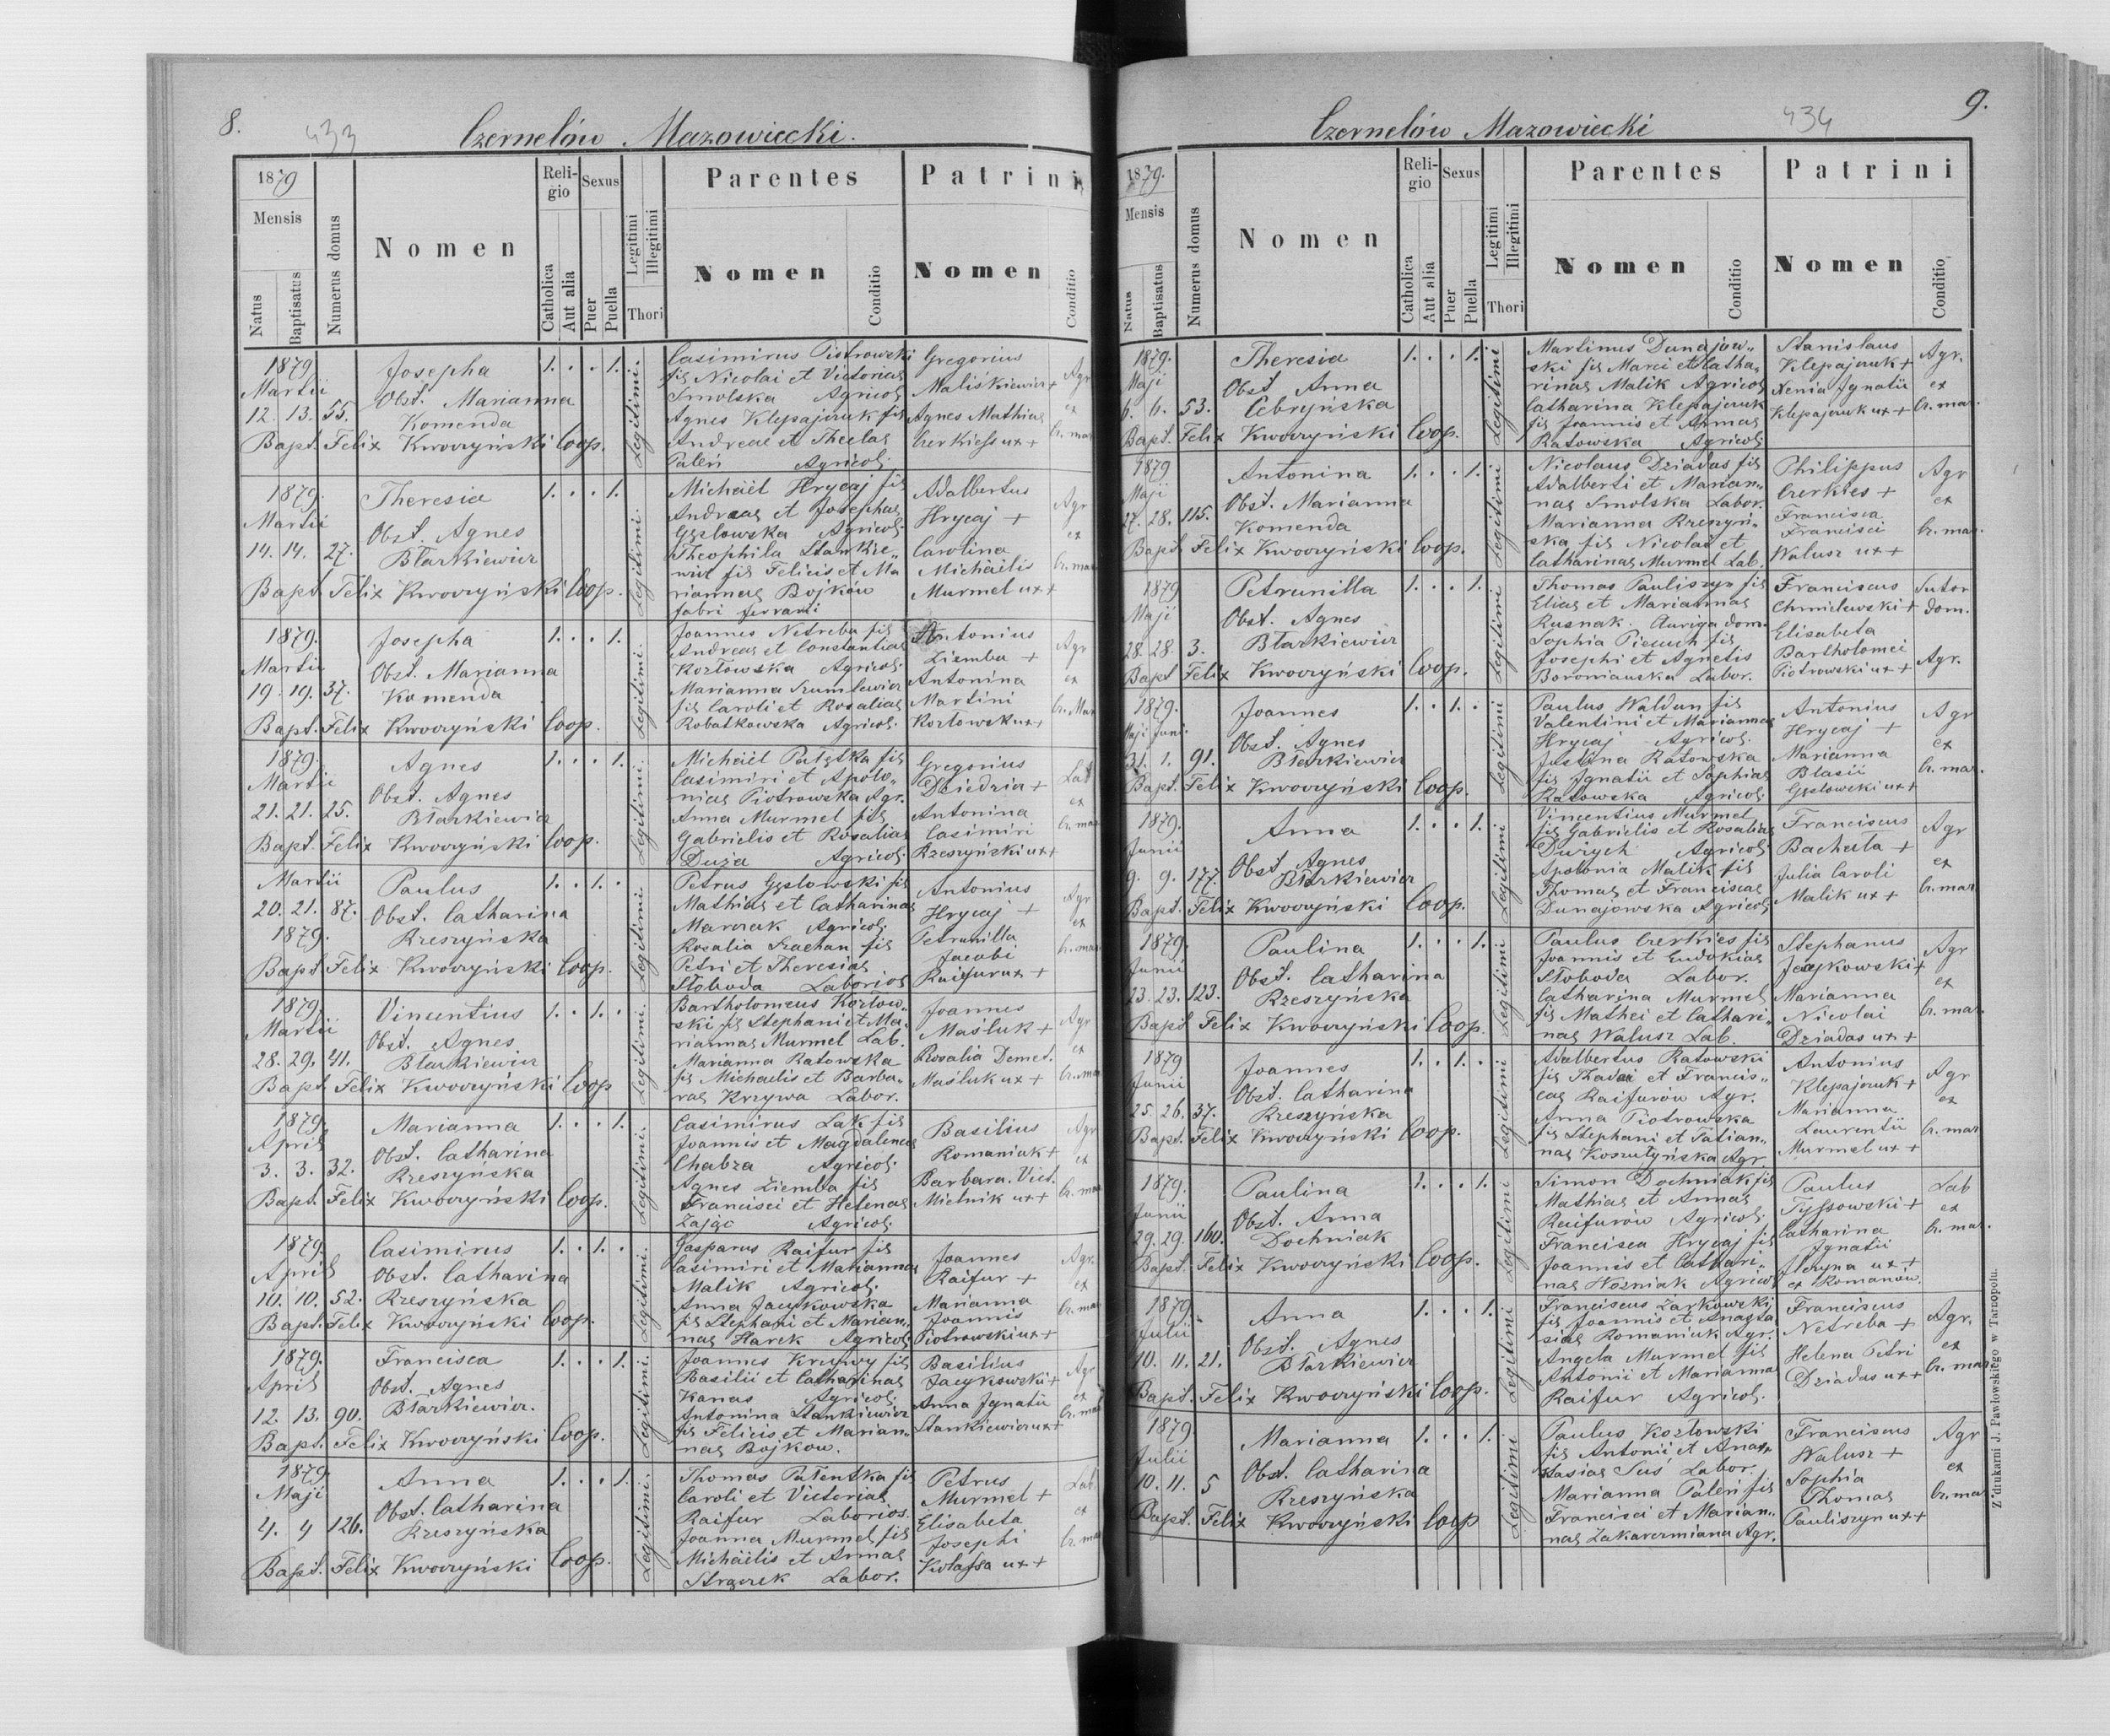 8.
433
Czernelów Mazowiecki.
1879
Mensis
Natus
Baptisatus
Numerus domus
Nomen
Religio
Catholica
Aut alia
Sexus
Puer
Puella
Legitimi
Illegitimi
Thori
Parentes
Nomen
Conditio
Patrini
Nomen
Conditio
1879
Martii
12. 13. 55.
Josepha
Obst. Marianna
Komenda
Bapt. Felix Kwoczyński Coop.
1. . . 1.
Legitimi.
Casimirus Piotrowski
fis Nicolai et Victorias
Smolska Agricol.
Agnes Klepajczuk fis
Andreae et Theclas
Paleń Agricol.
Gregorius
Maliśkiewicz +
Agnes Mathias
Czerkiess ux +
Agr
ex
Cz. maz
1879.
Martii
14. 14. 27.
Theresia
Obst. Agnes
Błazkiewicz
Bapt Felix Kwoczyński Coop.
1. . . 1.
Legitimi.
Michäel Hrycaj fis
Andreas et Josephas
Gęslowska Agricol.
Theophila Stankie„
wicz fis Felicis et Ma
riannas Bojków
fabri ferrarii
Adalbertus
Hrycaj +
Carolina
Michäilis
Murmel ux +
Agr
ex
Cz. maz
1879.
Martii
19. 19. 37.
Josepha
Obst. Marianna
Komenda
Bapt. Felix Kwoczyński Coop.
1. . . 1.
Legitimi.
Joannes Netreba fis
Andreas et Constantias
Kozłowska Agricol.
Marianna Szumlewicz
fis Caroli et Rosalias
Robatkowska Agricol.
Antonius
Ziemba +
Antonina
Martini
Kozlowsk ux +
Agr
ex
Cz. Maz
1879.
Martii
21. 21. 25.
Agnes
Obst. Agnes
Błazkiewicz
Bapt. Felix Kwoczyński Coop.
1. . . 1.
Legitimi.
Michäel Pałętka fis
Casimiri et Apolo„
nias Piotrowska Agr.
Anna Murmel fis
Gabrielis et Rosalias
Duża Agricol.
Gregorius
Dziedzia +
Antonina
Casimiri
Rzeszyński ux +
Lab
ex
Cz. maz
Martii
20. 21. 87.
1879.
Paulus
Obst. Catharina
Rzeszyńska
Bapt Felix Kwoczyński Coop.
1. . 1. .
Legitimi.
Petrus Gęslowski fis
Mathias et Catharinas
Marczak Agricol.
Rosalia Szachan fis
Petri et Theresias
Słoboda Laborios
Antonius
Hrycaj +
Petrunilla
Jacobi
Raifur ux +
Agr
ex
Cz. maz
1879.
Martii
28. 29. 41.
Vincentius
Obst. Agnes
Błazkiewicz
Bapt Felix Kwoczyński Coop
1. . 1. .
Legitimi.
Bartholomeus Kozłow„
ski fis Stephani et Ma„
riannas Murmel Lab.
Marianna Ratowska
fis Michaelis et Barba„
ras Krzywa Labor.
Joannes
Masluk +
Rosalia Demet.
Masluk ux +
Agr
ex
Cz. maz
1879.
April
3. 3. 32.
Marianna
Obst. Catharina
Rzeszyńska
Bapt. Felix Kwoczyński Coop.
1. . . 1.
Legitimi.
Casimirus Lak fis
Joannis et Magdalenas
Chabza Agricol.
Agnes Ziemba fis
Francisci et Helenas
Zając Agricol.
Basilius
Romaniak +
Barbara Vict.
Mielnik ux +
Agr
ex
Cz. maz
1879.
April
10. 10. 52.
Casimirus
Obst. Catharina
Rzeszyńska
Bapt. Felix Kwoczyński Coop.
1. . 1. .
Legitimi.
Gasparus Raifur fis
Casimiri et Mariannas
Malik Agricol.
Anna Jacykowska
fis Stephani et Marian„
nas Harek Agricol.
Joannes
Raifur +
Marianna
Joannis
Piotrowski ux +
Agr.
ex
Cz. maz
1879.
April
12. 13. 90.
Francisca
Obst. Agnes
Błazkiewicz.
Bapt. Felix Kwoczyński Coop.
1. . . 1.
Legitimi.
Joannes Krzywy fis
Basilii et Catharinas
Kanas Agricol.
Antonina Stankiewicz
fis Felicis et Marian„
nas Bojkow.
Basilius
Jacykowski +
Anna Ignatii
Stankiewicz ux +
Agr
ex
Cz. maz
1879
Maji
4. 4 126.
Anna
Obst. Catharina
Rzeszyńska
Bapt. Felix Kwoczyński Coop.
1. . . 1.
Legitimi.
Thomas Patentka fis
Caroli et Victorias
Raifur Laborios.
Joanna Murmel fis
Michäelis et Annas
Strączek Labor.
Petrus
Murmel +
Elisabeta
Josephi
Kolassa ux +
Lab.
ex
Cz. maz
9.
434
Czernelów Mazowiecki
1879.
Mensis
Natus
Baptisatus
Numerus domus
Nomen
Religio
Catholica
Aut alia
Sexus
Puer
Puella
Legitimi
Illegitimi
Thori
Parentes
Nomen
Conditio
Patrini
Nomen
Conditio
1879.
Maji
6. 6. 53.
Theresia
Obst Anna
Cebryńska
Bapt. Felix Kwoczyński Coop.
1. . . 1.
Legitimi
Martinus Dunajow„
ski fis Marci et Catha„
rinas Malik Agricol
Catharina Klepajczuk
fis Joannis et Annas
Ratowska Agricol.
Stanislaus
Klepajczuk +
Xenia Ignatii
Klepajczuk ux +
Agr.
ex
Cz. maz.
1879
Maji
27. 28. 115.
Antonina
Obst. Marianna
Komenda
Bapt. Felix Kwoczyński Coop.
1. . . 1.
Legitimi
Nicolaus Dziadas fis
Adalberti et Marian„
nas Smolska Labor.
Marianna Rzeszyń„
ska fis Nicolai et
Catharinas Murmel Lab.
Philippus
Czerkies +
Francisca
Francisci
Walusz ux +
Agr
ex
Cz. maz.
1879
Maji
28. 28. 3.
Petrunilla
Obst. Agnes
Błazkiewicz
Bapt Felix Kwoczyński Coop.
1. . . 1.
Legitimi
Thomas Pauliszyn fis
Elias et Mariannas
Rusnak. Auriga dom.
Sophia Piecuch fis
Josephi et Agnetis
Boroniauska Labor.
Franciscus
Chmielewski +
Elisabeta
Bartholomei
Piotrowski ux +
Sutor
dom.
Agr.
1879.
Maji Juni.
31. 1. 91.
Joannes
Obst. Agnes
Błazkiewicz
Bapt. Felix Kwoczyński Coop.
1. . 1. .
Legitimi
Paulus Waldun fis
Valentini et Mariannas
Hrycaj Agricol.
Justina Ratowska
fis Ignatii et Sophias
Ratowska Agricol.
Antonius
Hrycaj +
Marianna
Blasii
Gęslowski ux +
Agr
ex
Cz. maz.
1879.
Junii
9. 9. 177.
Anna
Obst. Agnes
Błazkiewicz
Bapt. Felix Kwoczyński Coop.
1. . . 1.
Legitimi
Vincentius Murmel
fis Gabrielis et Rosalias
Dużych Agricol.
Apolonia Malik fis
Thomas et Franciscas
Dunajowska Agricol.
Franciscus
Bachata +
Julia Caroli
Malik ux +
Agr
ex
Cz. maz.
1879.
Junii
23. 23. 123.
Paulina
Obst. Catharina
Rzeszyńska
Bapt Felix Kwoczyński Coop.
1. . . 1.
Legitimi
Paulus Czerkies fis
Joannis et Eudokias
Słoboda Labor.
Catharina Murmel
fis Mathei et Cathari„
nas Walusz Lab.
Stephanus
Jacykowski +
Marianna
Nicolai
Dziadas ux +
Agr
ex
Cz. maz.
1879
Junii
25. 26. 37.
Joannes
Obst. Catharina
Rzeszyńska
Bapt. Felix Kwoczyński Coop.
1. . 1. .
Legitimi
Adalbertus Ratowski
fis Thadei et Francis„
cas Raifurów Agr.
Anna Piotrowska
fis Stephani et Tatian„
nas Koszutyńska Agr.
Antonius
Klepajczuk +
Marianna
Laurentii
Murmel ux +
Agr
ex
Cz. maz
1879.
Junii
29. 29. 160.
Paulina
Obst. Anna
Dochniak
Bapt. Felix Kwoczyński Coop.
1. . . 1.
Legitimi
Simon Dochniak fis
Mathias et Annas
Raifurów Agricol.
Francisca Hrycaj fis
Joannis et Cathari„
nas Woźniak Agricol
Paulus
Tyssowski +
Catharina
Ignatii
ux +
ex Romanów.
Lab
ex
Cz. maz.
1879.
Julii
10. 11. 21.
Anna
Obst. Agnes
Błazkiewicz
Bapt. Felix Kwoczyński Coop.
1. . . 1.
Legitimi
Franciscus Żarkowski
fis Joannis et Anasta
sias Romaniuk Agr.
Angela Murmel fis
Antonii et Mariannas
Raifur Agricol.
Franciscus
Netreba +
Helena Petri
Dziadas ux +
Agr.
ex
Cz. maz
1879
Julii
10. 11. 5
Marianna
Obst. Catharina
Rzeszyńska
Bapt. Felix Kwoczyński Coop
1. . . 1.
Legitimi
Paulus Kozłowski
fis Antonii et Anas„
tasias Suś Labor.
Marianna Paleń fis
Francisci et Marian„
nas Zakaverniana Agr.
Franciscus
Walusz +
Sophia
Thomas
Pauliszyn ux +
Agr
ex
Cz. maz
Z drukarni J. Pawłowskiego w Tarnopolu.